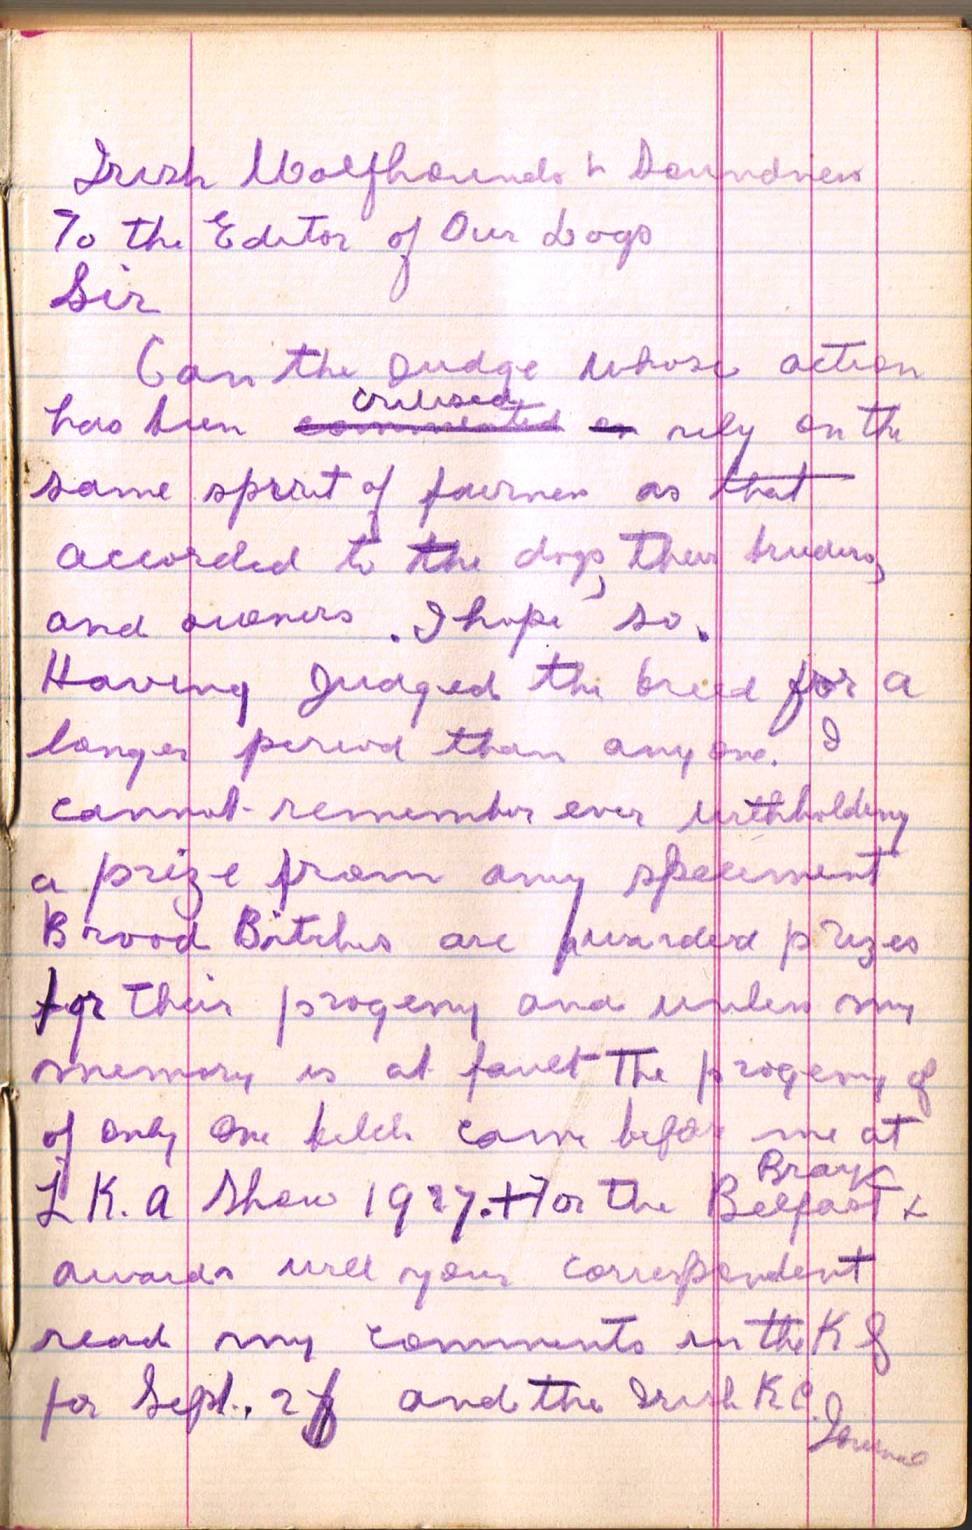 Irish Wolfhounds & Soundness
To the Editor of Our Dogs
Sir
Can the Judge whose action
critised
has been commented on rely on the
same spirit of fairness as that
accorded to the dogs, their breeders,
and owners. I hope so.
Having Judged the breed for a
longer period than any one. I
cannot remember ever withholding
a prize from any speciment
Brood Bitches are awarded prizes
for their progeny and unless my
memory is at fault The progeny of
of only one came before me at
Bray
L K. A Show 1927. + For the Belfast &
awards will your correspondent
read my comments in the K G
for Sept. and the Irish K C.
Journal